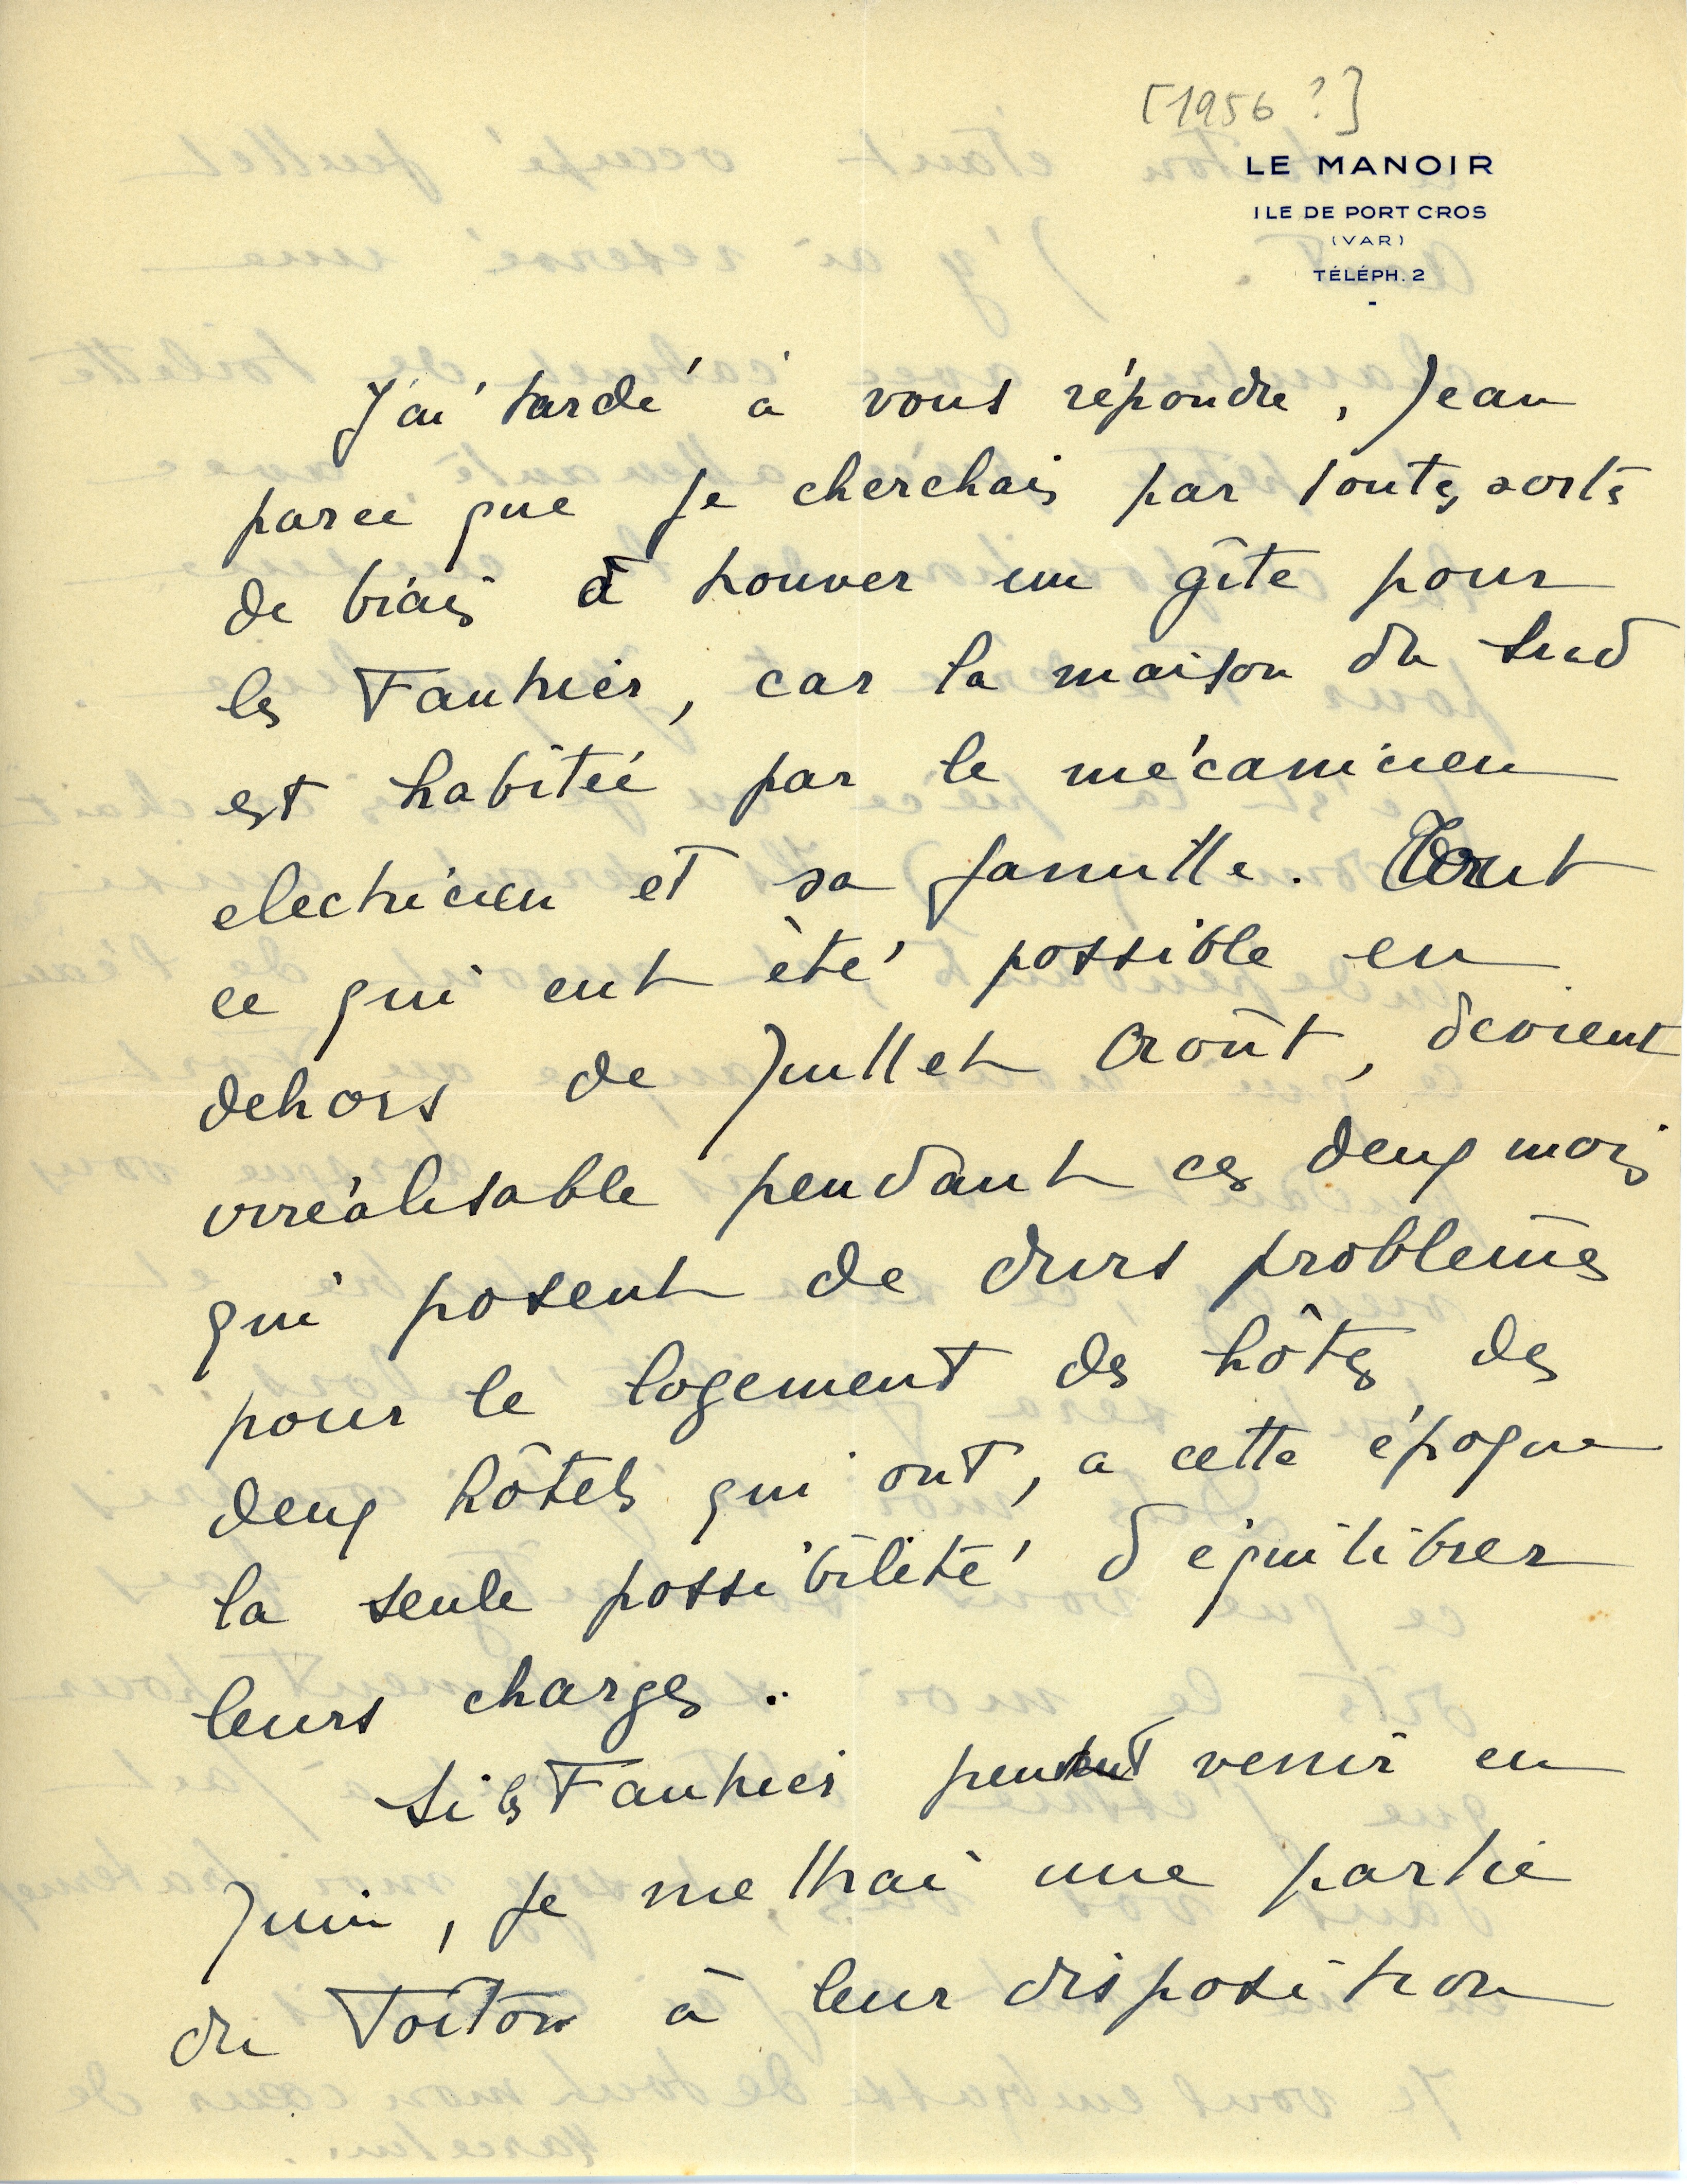 [1956 ?]
LE MANOIR
ILE DE PORT CROS
(VAR)
TÉLÉPH. 2
J'ai tardé à vous répondre, Jean
parce que je cherchais par toutes sortes
de biais à trouver un gîte pour
les Fautrier, car la maison du Sud
est habitée par le mécanicien
electricien et sa famille. Tout
ce qui eut été possible en
dehors de Juillet Août, devient
irréalisable pendant ces deux mois
qui posent de durs problèmes
pour le logement des hôtes des
deux hôtels qui ont, a cette époque
la seule possibilité d'équilibrer
leurs charges..
Si les Fautrier peuvent venir en
Juin, je mettrai une partie
du Toiton à leur disposition